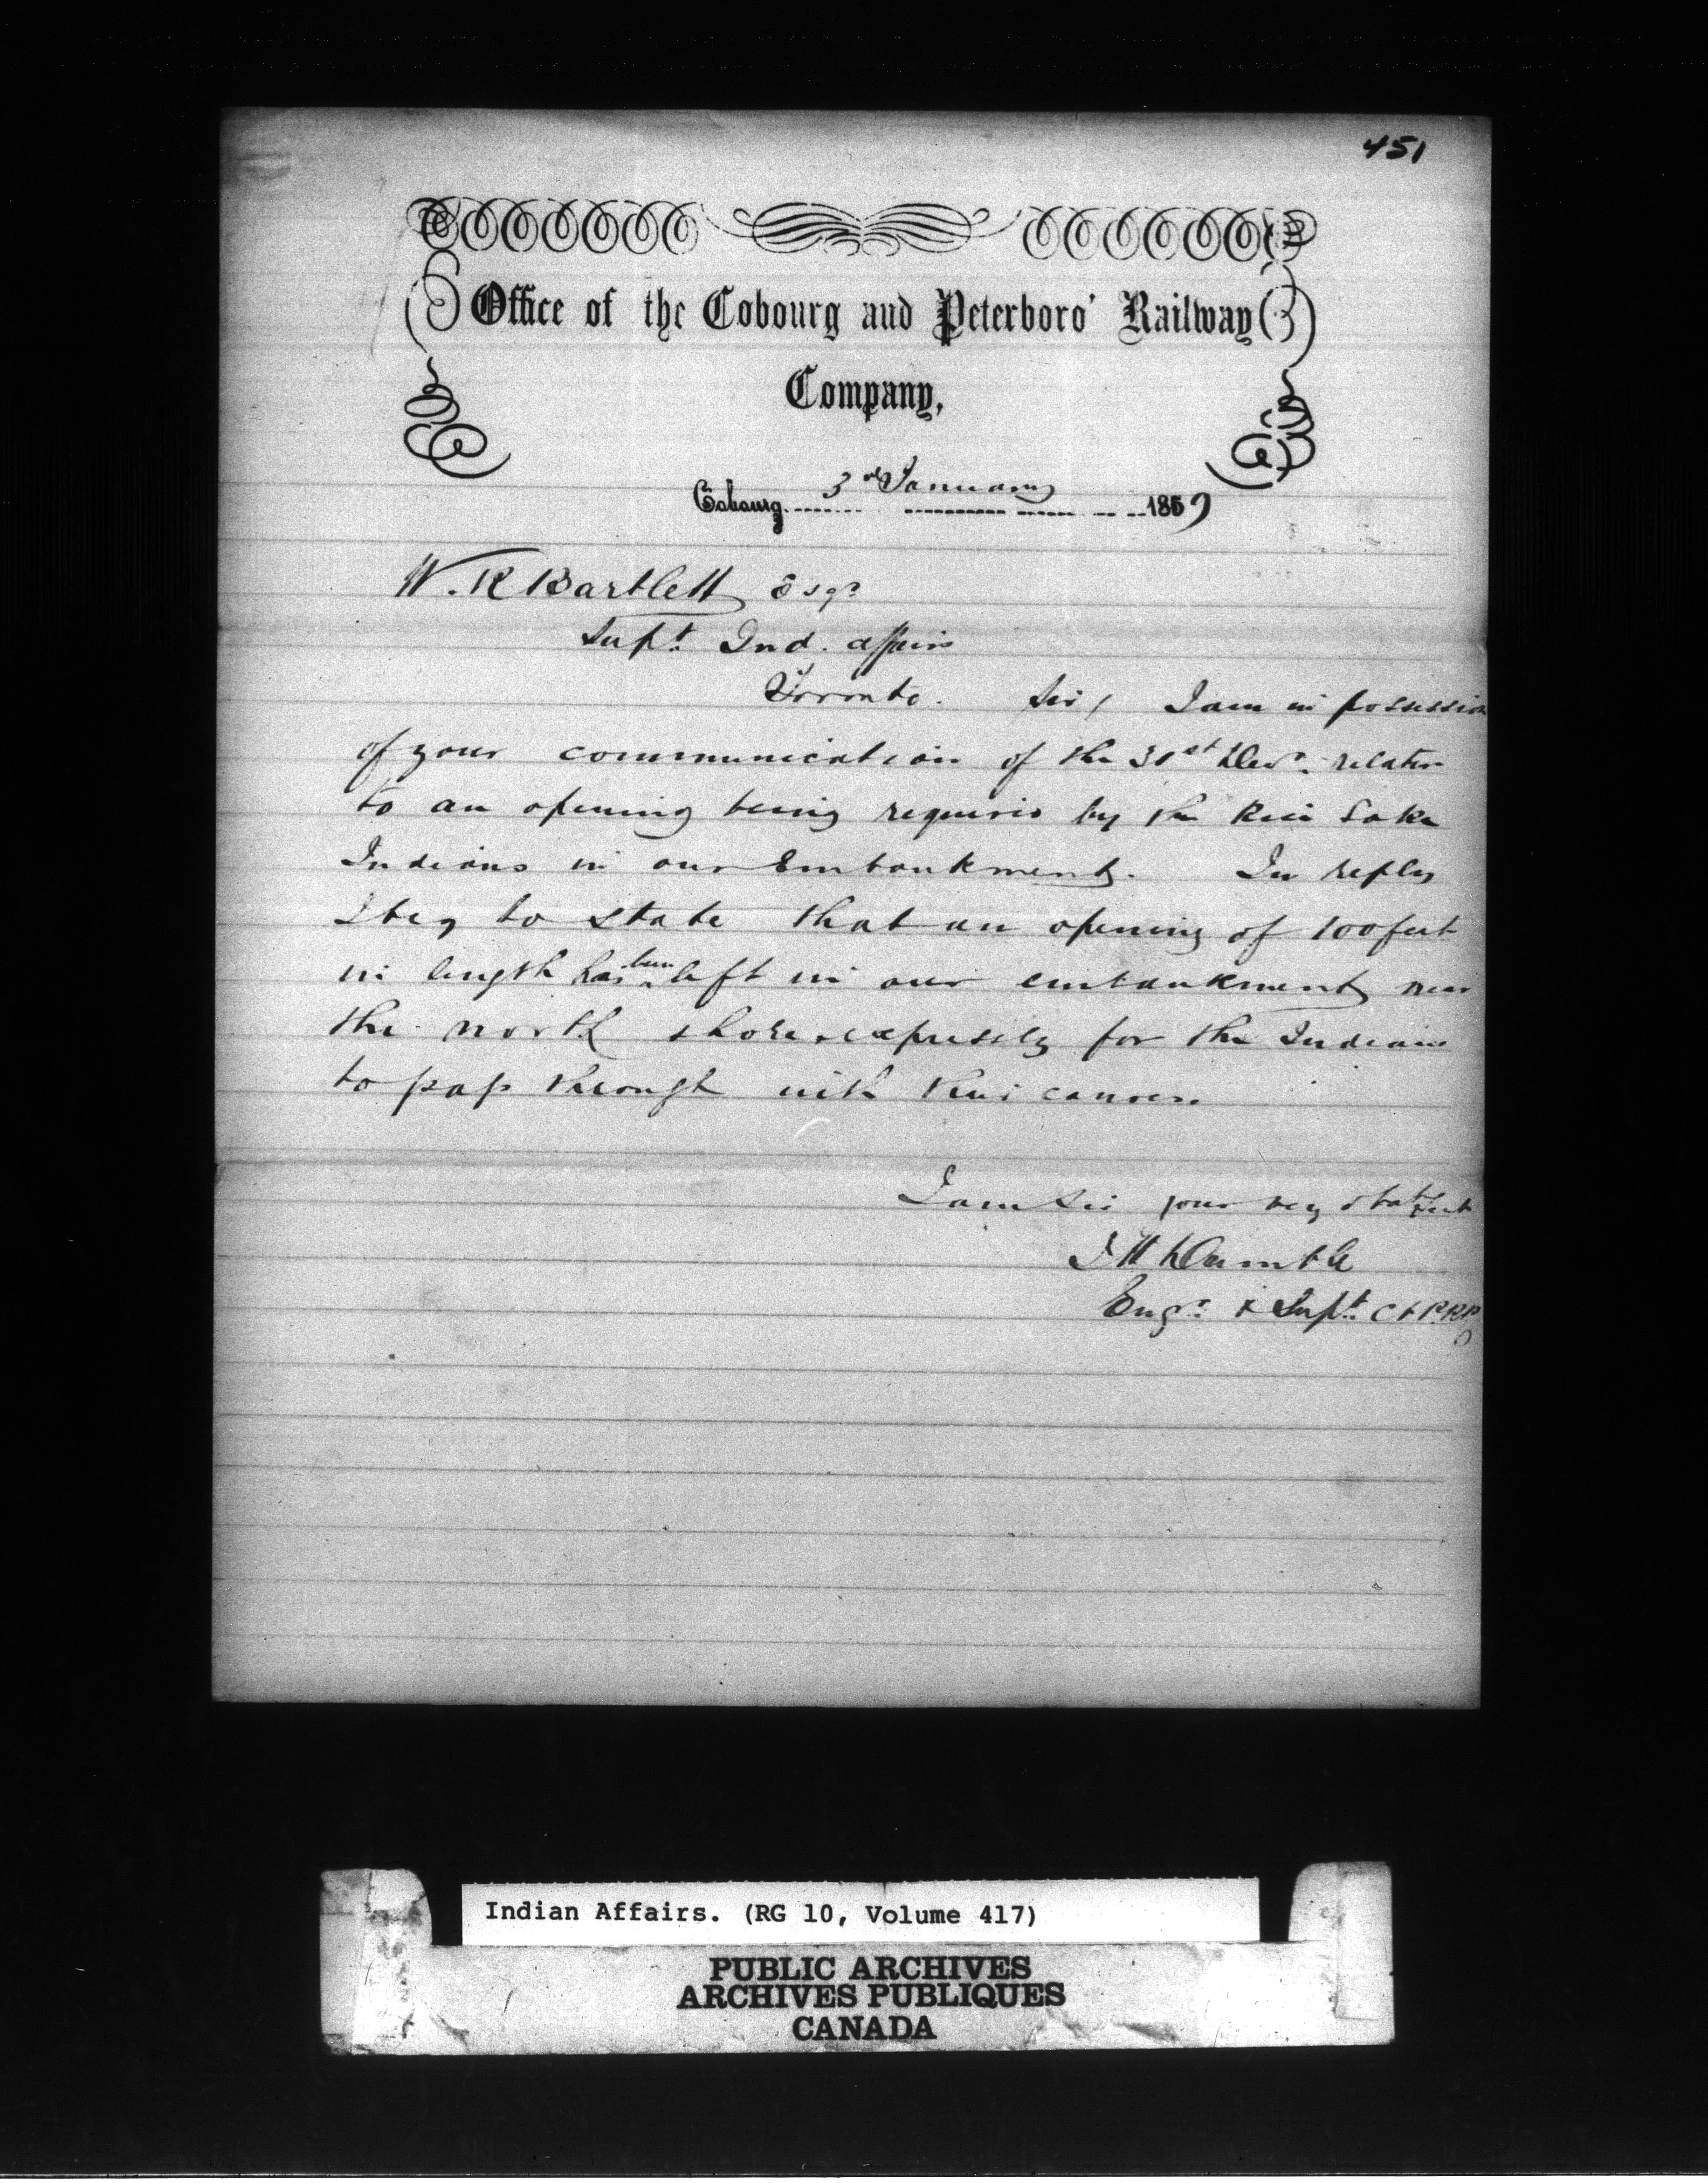 451
Office of the Cobourg and Peterboro' Railway
Company,
Cobourg 3rd January 1859
W. R Bartlett Esqr
Supt. Ind. affairs
Toronto. Sir, I am in possession
of your communication of the 31st Decr. relative
to an opening being required by the Rice Lake
Indians in our Embankment. In reply
I beg to state that an opening of 100 feet
in length has been left in our embankment near
the north shore expressly for the Indians
to pass through with their canoes.
I am Sir your very obdt
J H Dumble
Engr. & Supt. C & P. R R
Indian Affairs. (RG 10, Volume 417)
PUBLIC ARCHIVES
ARCHIVES PUBLIQUES
CANADA